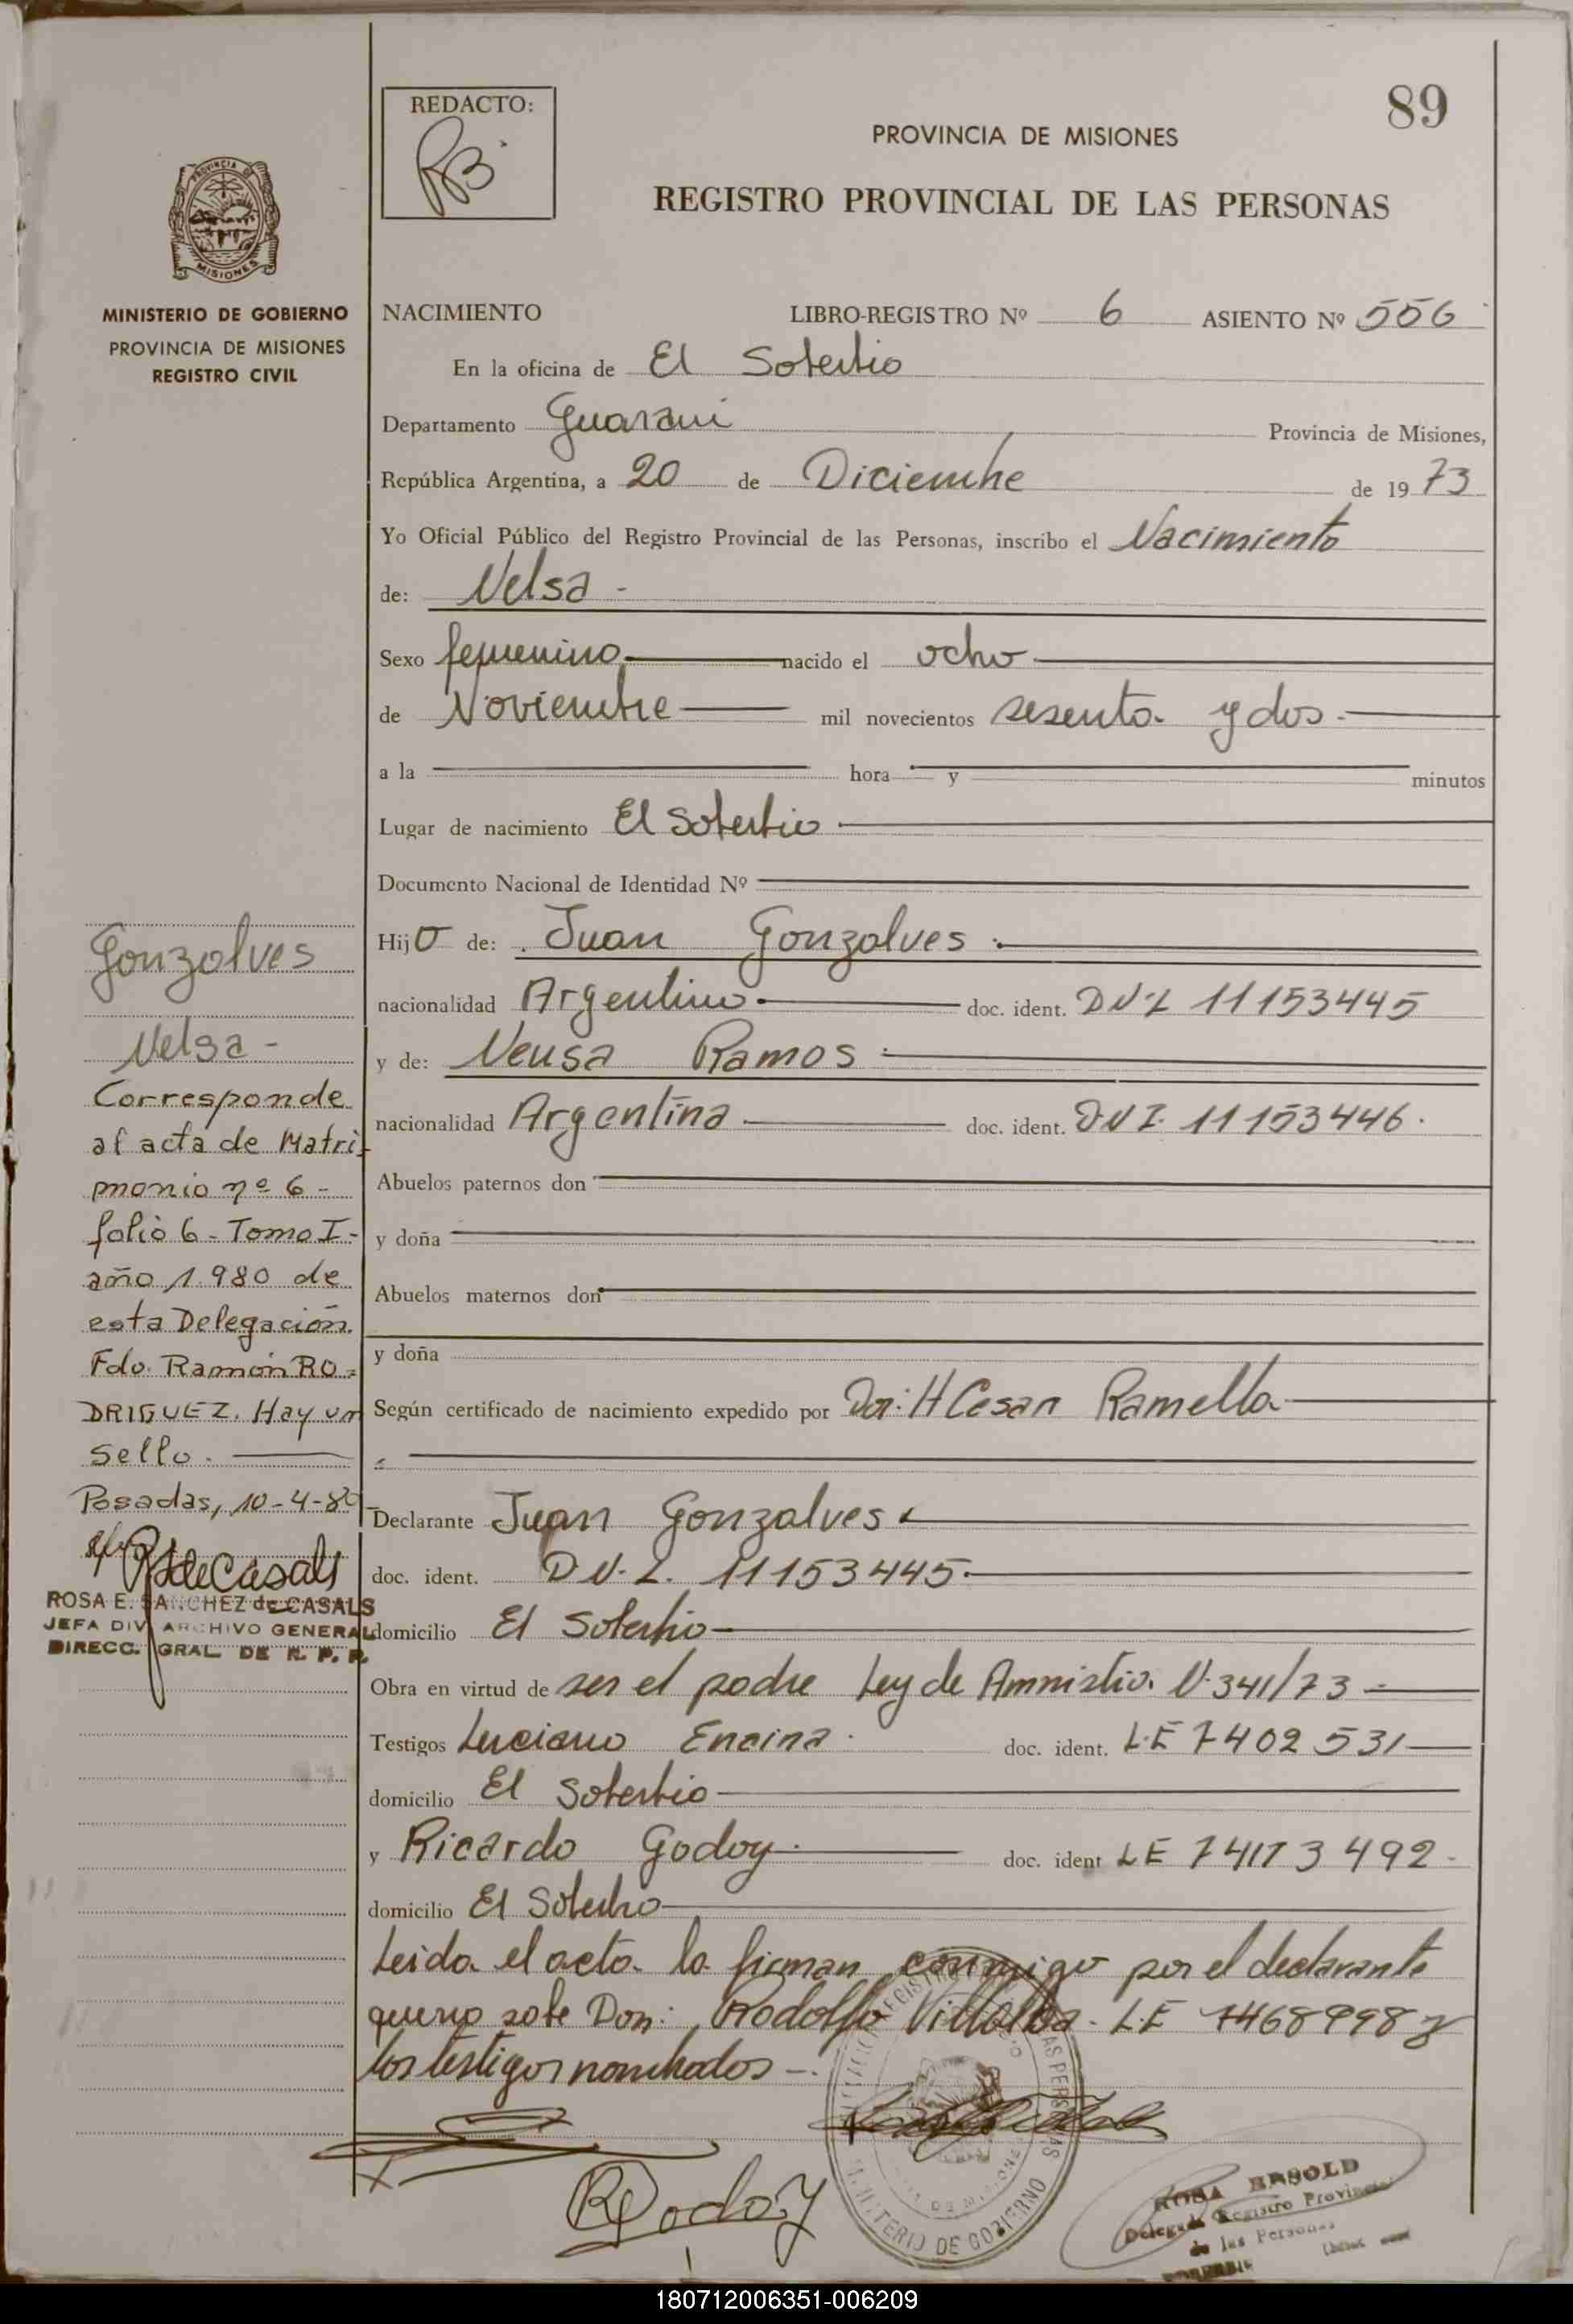 89
REDACTO:
RB.
PROVINCIA DE MISIONES
REGISTRO PROVINCIAL DE LAS PERSONAS
PROVINCIA DE
MISIONES
MINISTERIO DE GOBIERNO
PROVINCIA DE MISIONES
REGISTRO CIVIL
NACIMIENTO LIBRO-REGISTRO Nº 6 ASIENTO Nº 556
En la oficina de El Soberbio
Departamento Guarani Provincia de Misiones,
República Argentina, a 20 de Diciembre de 1973
Yo Oficial Público del Registro Provincial de las Personas, inscribo el Nacimiento
de: Nelsa -
Sexo femenino nacido el ocho
de Noviembre mil novecientos sesenta y dos.
a la hora y minutos
Lugar de nacimiento El Soberbio
Documento Nacional de Identidad Nº
Hijo de: Juan Gonzalves
nacionalidad Argentino doc. ident. DNI 11153445
y de: Neusa Ramos
nacionalidad Argentina doc. ident. DNI. 11153446.
Abuelos paternos don
y doña
Abuelos maternos don
y doña
Según certificado de nacimiento expedido por Dor: H Cesar Ramella
Declarante Juan Gonzalves
doc. ident. D.N.I. 11153445.
domicilio El Soberbio
Obra en virtud de ser el padre Ley de Amnistia. N.341/73
Testigos Luciano Encina. doc. ident. L.E 7402531
domicilio El Soberbio
y Ricardo Godoy. doc. ident LE 7473492-
domicilio El Soberbio
Leida el acta la firman conmigo por el declarante
que no sabe Don: Rodolfo Villalba. L.E y
los testigos nombrados -.
Gonzalves
Nelsa -
Corresponde
al acta de Matri-
monio nº 6 -
folio 6 - Tomo I -
año 1.980 de
esta Delegación.
Fdo. Ramón RO-
DRIGUEZ. Hay un
sello.
Posadas, 10-4-80
RSdeCasals
ROSA E. SANCHEZ de CASALS
JEFA DIV ARCHIVO GENERAL
DIRECC. GRAL DE R. P. P.
RGodoy
MINISTERIO DE GOBIERNO
ROSA
Delegada Registro Provincial
de las Personas
180712006351-006209